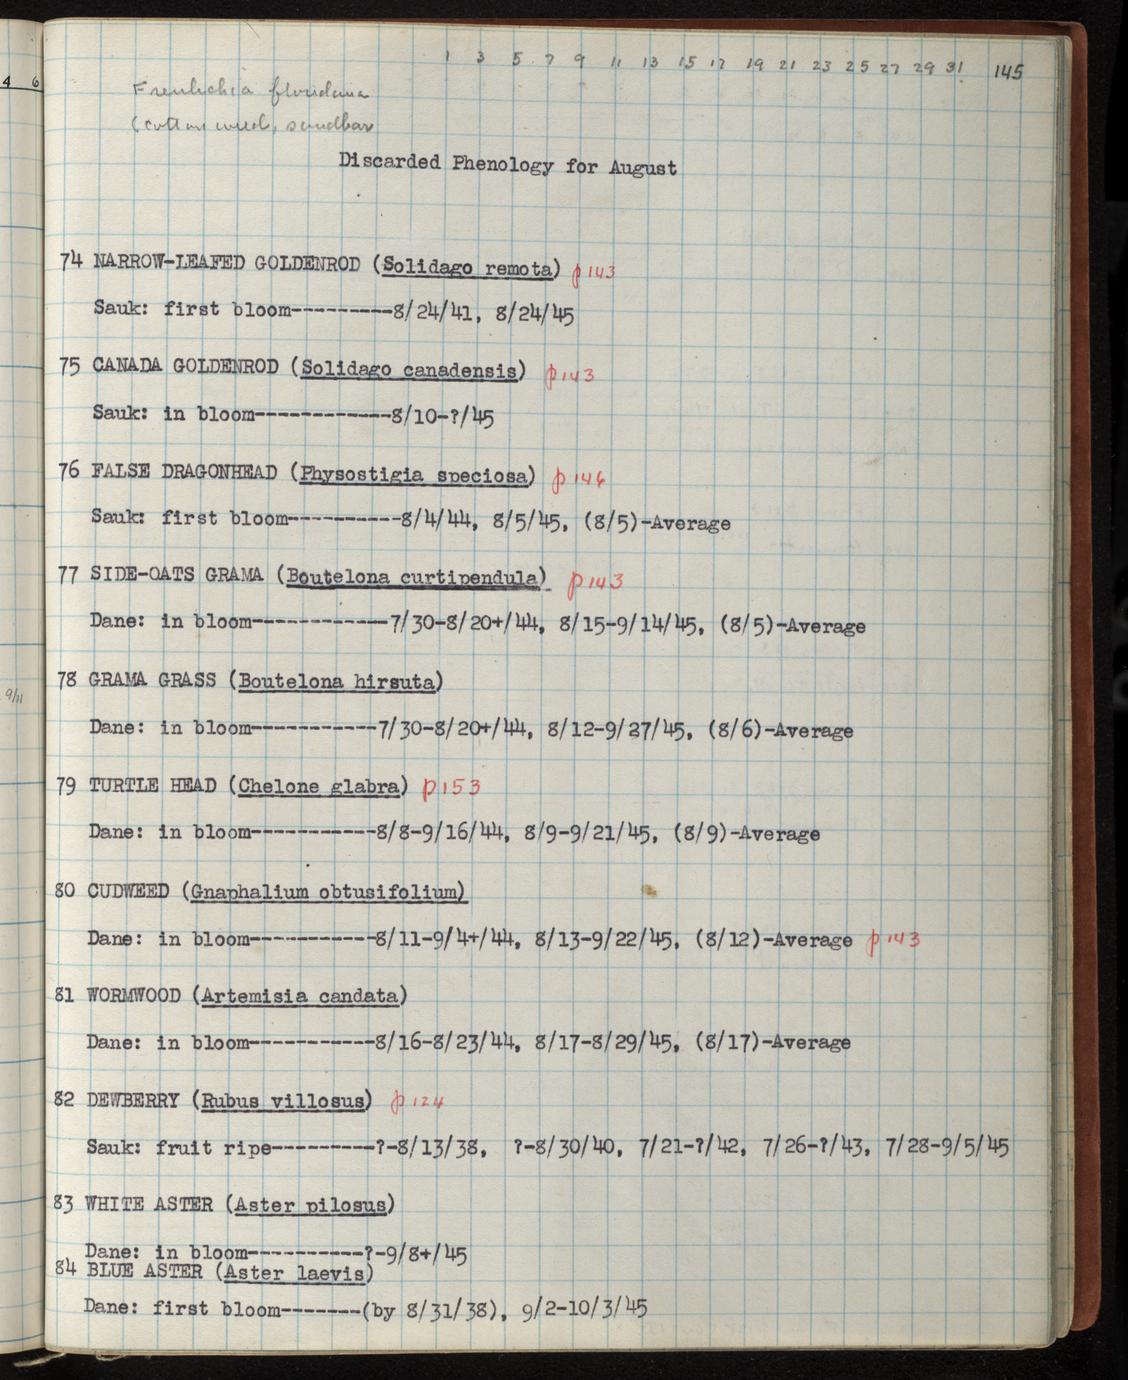 4 6
1 3 5 7 9 11 13 15 17 19 21 23 25 27 29 31 145
Froelichia floridana
(cotton weed, sandbar
Discarded Phenology for August
74 NARROW-LEAFED GOLDENROD (Solidago remota) p143
Sauk: first bloom---------8/24/41, 8/24/45
75 CANADA GOLDENROD (Solidago canadensis) p143
Sauk: in bloom------------8/10-?/45
76 FALSE DRAGONHEAD (Physostigia speciosa) p146
Sauk: first bloom----------8/4/44, 8/5/45, (8/5)-Average
77 SIDE-OATS GRAMA (Boutelona curtipendula) p143
Dane: in bloom------------7/30-8/20+/44, 8/15-9/14/45, (8/5)-Average
78 GRAMA GRASS (Boutelona hirsuta)
9/11
Dane: in bloom-----------7/30-8/20+/44, 8/12-9/27/45, (8/6)-Average
79 TURTLE HEAD (Chelone glabra) p153
Dane: in bloom-----------8/8-9/16/44, 8/9-9/21/45, (8/9)-Average
80 CUDWEED (Gnaphalium obtusifolium)
Dane: in bloom-----------8/11-9/4+/44, 8/13-9/22/45, (8/12)-Average p143
81 WORMWOOD (Artemisia candata)
Dane: in bloom-----------8/16-8/23/44, 8/17-8/29/45, (8/17)-Average
82 DEWBERRY (Rubus villosus) p124
Sauk: fruit ripe---------?-8/13/38, ?-8/30/40, 7/21-?/42, 7/26-?/43, 7/28-9/5/45
83 WHITE ASTER (Aster pilosus)
Dane: in bloom----------?-9/8+/45
84 BLUE ASTER (Aster laevis)
Dane: first bloom-------(by 8/31/38), 9/2-10/3/45